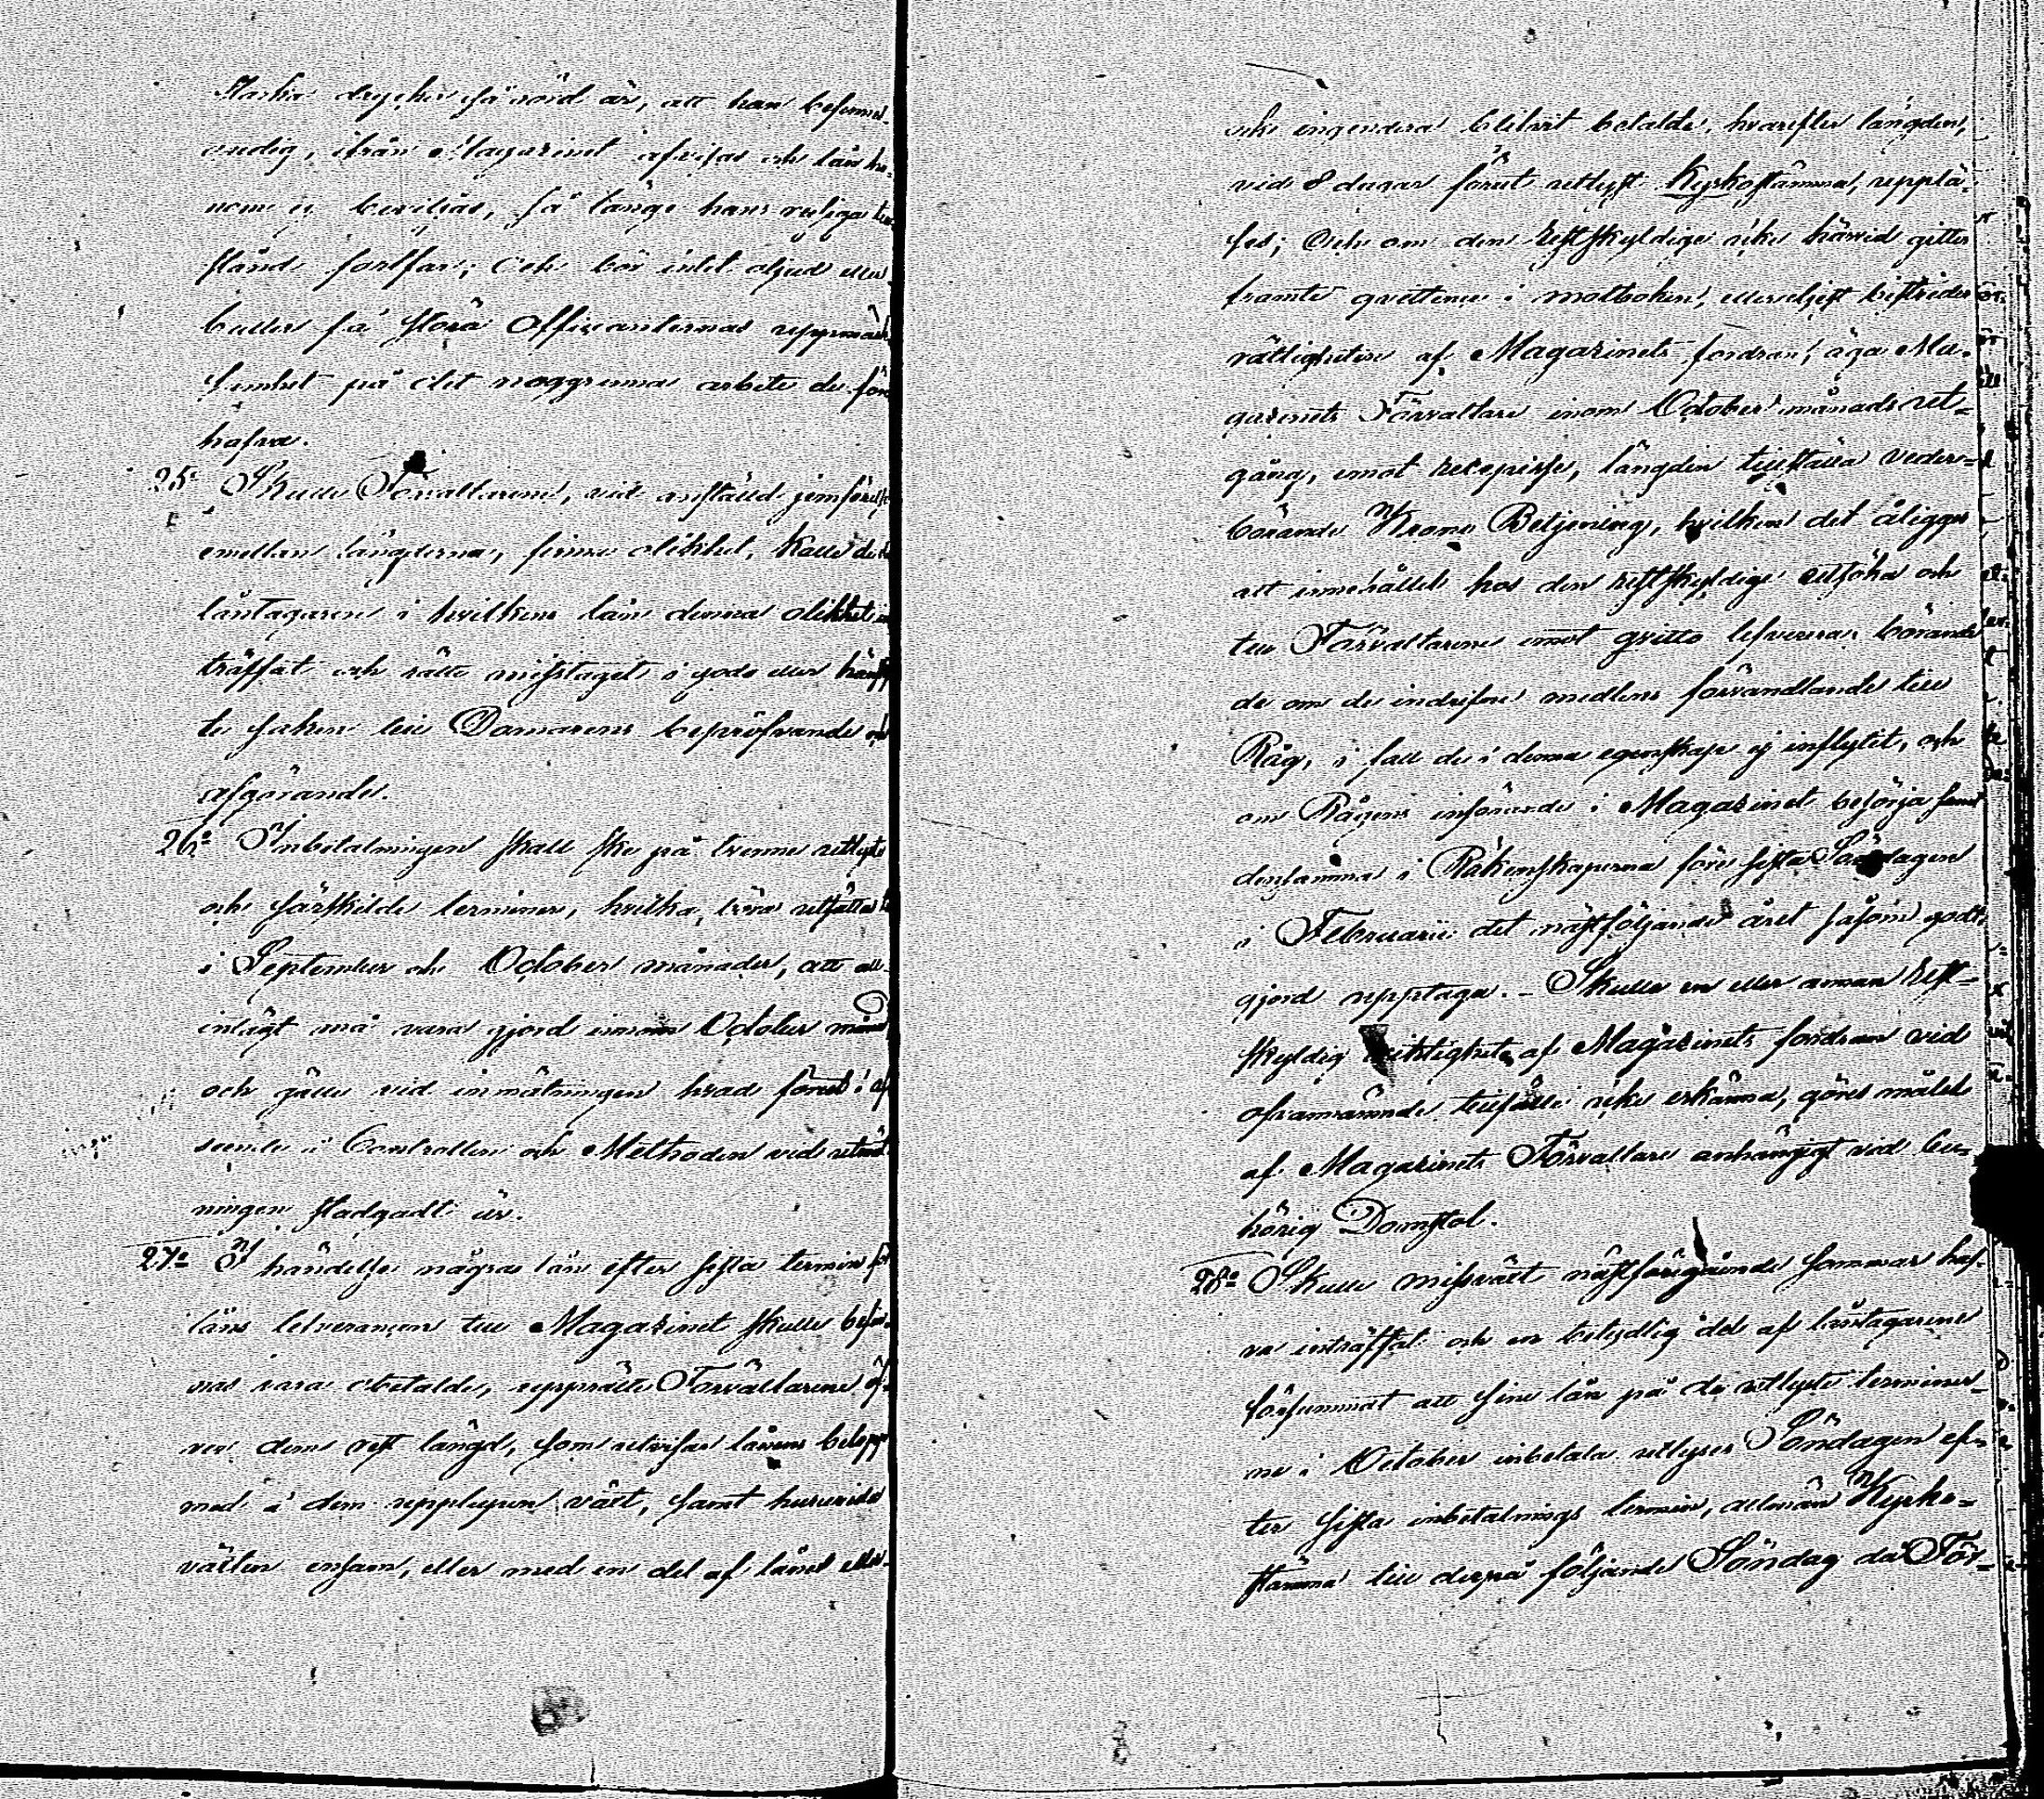 Starka drycker så rörd är, att han befinnes
ovädig, ifrån Magazinet afvisas och lån ho-
nom ej beviljas, så länge hans rusiga till
stånd fortfar; Och bör intet oljud eller
buller få störa Officianternas uppmärk
samhet på det noggranna arbete de för
hafva.
25o Skulle Förvaltarene, vid anställd jemförelse
emellan längderna, finna olikhet, kalle de
låntagaren i hvilkens lån denna olikhet in
träffat och rätte misstaget i godo eller hänskju
te saken till Domarens bepröfvande och
afgörande.
26o Inbetalningen skall ske på trenne utlyste
och särskilde terminer, hvilka böra utsättas
i September och October månader, att all
inlagt må vara gjord innom October månad
och gälle vid inmätningen hvad förut i af
seende å Controllen och Methoden vid utmät
ningen stadgadt är.
27o I händelse några lån efter sista termin för
låns leverancen till Magazinet skulle befin-
nas vara obetalde, upprätte Förvaltarene öf-
ver dem rest längd, som utvisar lånens belopp
med å dem upplupen växt, samt huruvida
växten ensam, eller med en del af lånet eller
icke ingendera blifvit betaldt, hvarefter längden,
vid 8 dagar förut utlyst Kyrkostämma, upplä-
ses; Och om den restskyldige icke härvid gitter
framte qvittence i motboken, eller eljest bestrider
rättigheten af Magazinets fordran, äga Ma-
gazinets Förvaltare inom October månads ut-
gång, emot recepisse, längden tillställa veder-
börande Krono Betjening, hvilken det åligger
att innehållet hos den restskyldige utsöka och
till Förvaltarene emot qvitto lefverera börande
de om de indrifne medlens förvandlande till
Råg, i fall de i denna egenskap ej influtit, och
om Rågens införande i Magazinet besörja samt
densamma i Räkenskaperna före sista Söndagen
i Februarii det nästföljande året såsom godt
gjord upptaga. – Skulle en eller annan Rest-
skyldig riktigheten af Magazinets fordran vid
ofvannämnde tillfälle icke erkänna, göres målet
af Magazinets Förvaltare anhängigt vid be-
hörig Domstol.
28o Skulle missväxt nästföregående sommar haf-
va inträffat och en betydlig del af låntagarene
försummat att sine lån på de utlyste terminer-
ne i October inbetala utlyses Söndagen ef-
ter sista inbetalnings termin, allmän Kyrko-
stämma till derpå följande Söndag då För-